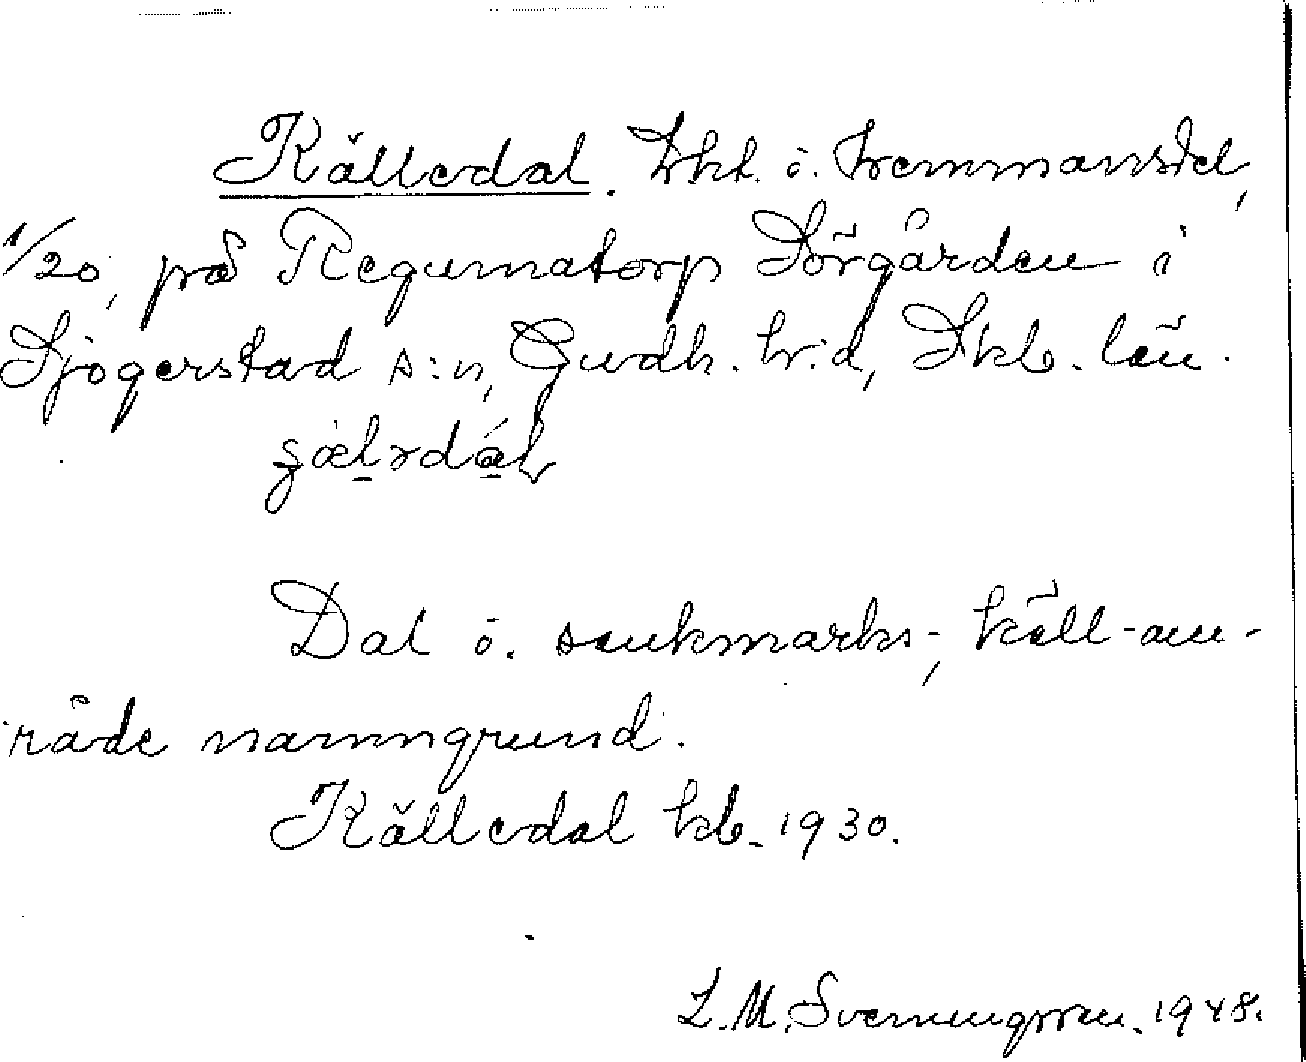 Källedal. Lht. o. hemmansdel,
1/20, på Regumatorp Sörgården i
Sjogerstad s:n, Gudh. h:d, Skb. län.
Dal o. sankmarks-, käll-om-
råde namngrund.
Källedal kb. 1930.
L. M. Svenungsson. 1948.